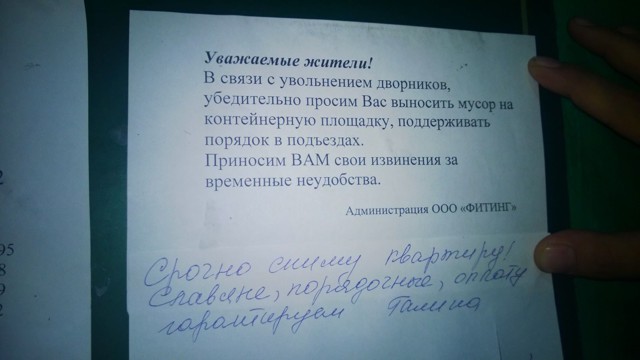 Уважаемые жители!
В связи с увольнением дворников,
убедительно просим Вас выносить мусор на
контейнерную площадку, поддерживать
порядок в подъездах.
Приносим ВАМ свои извинения за
временные неудобства.
Администрация ООО «ФИТИНГ»
Срочно сниму квартиру!
Славяне, порядочные, оплату
гарантируем Галина
2
95
8
9
2